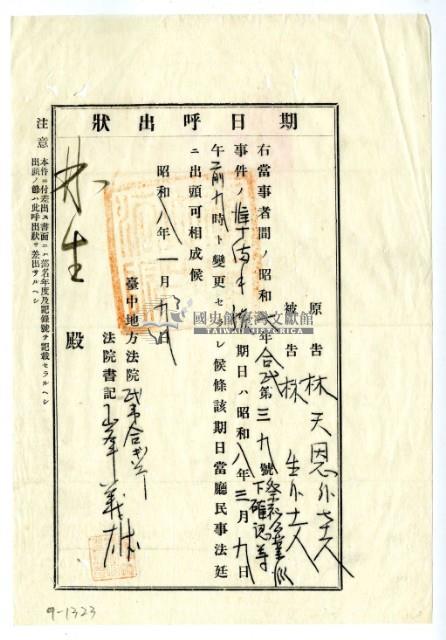 期日呼出狀
原告 林天恩外七人
被告 林生外十一人
右當事者間ノ昭和 年合民第三九號
下確認等
事件ノ準備手續期日ハ昭和八年三月九日
午前九時ト變更セラレ候條該期日當廳民事法廷
ニ出頭可相成候
昭和八年一月 日
臺中地方法院
法院書記
林生 殿
注意 本件ニ付差出ス書面ニハ部名年度及記錄號ヲ記載セラルヘシ
出頭ノ節ハ此呼出狀ヲ差出サルヘシ
國史館臺灣文獻館
TAIWAN HISTORICA
9-1323